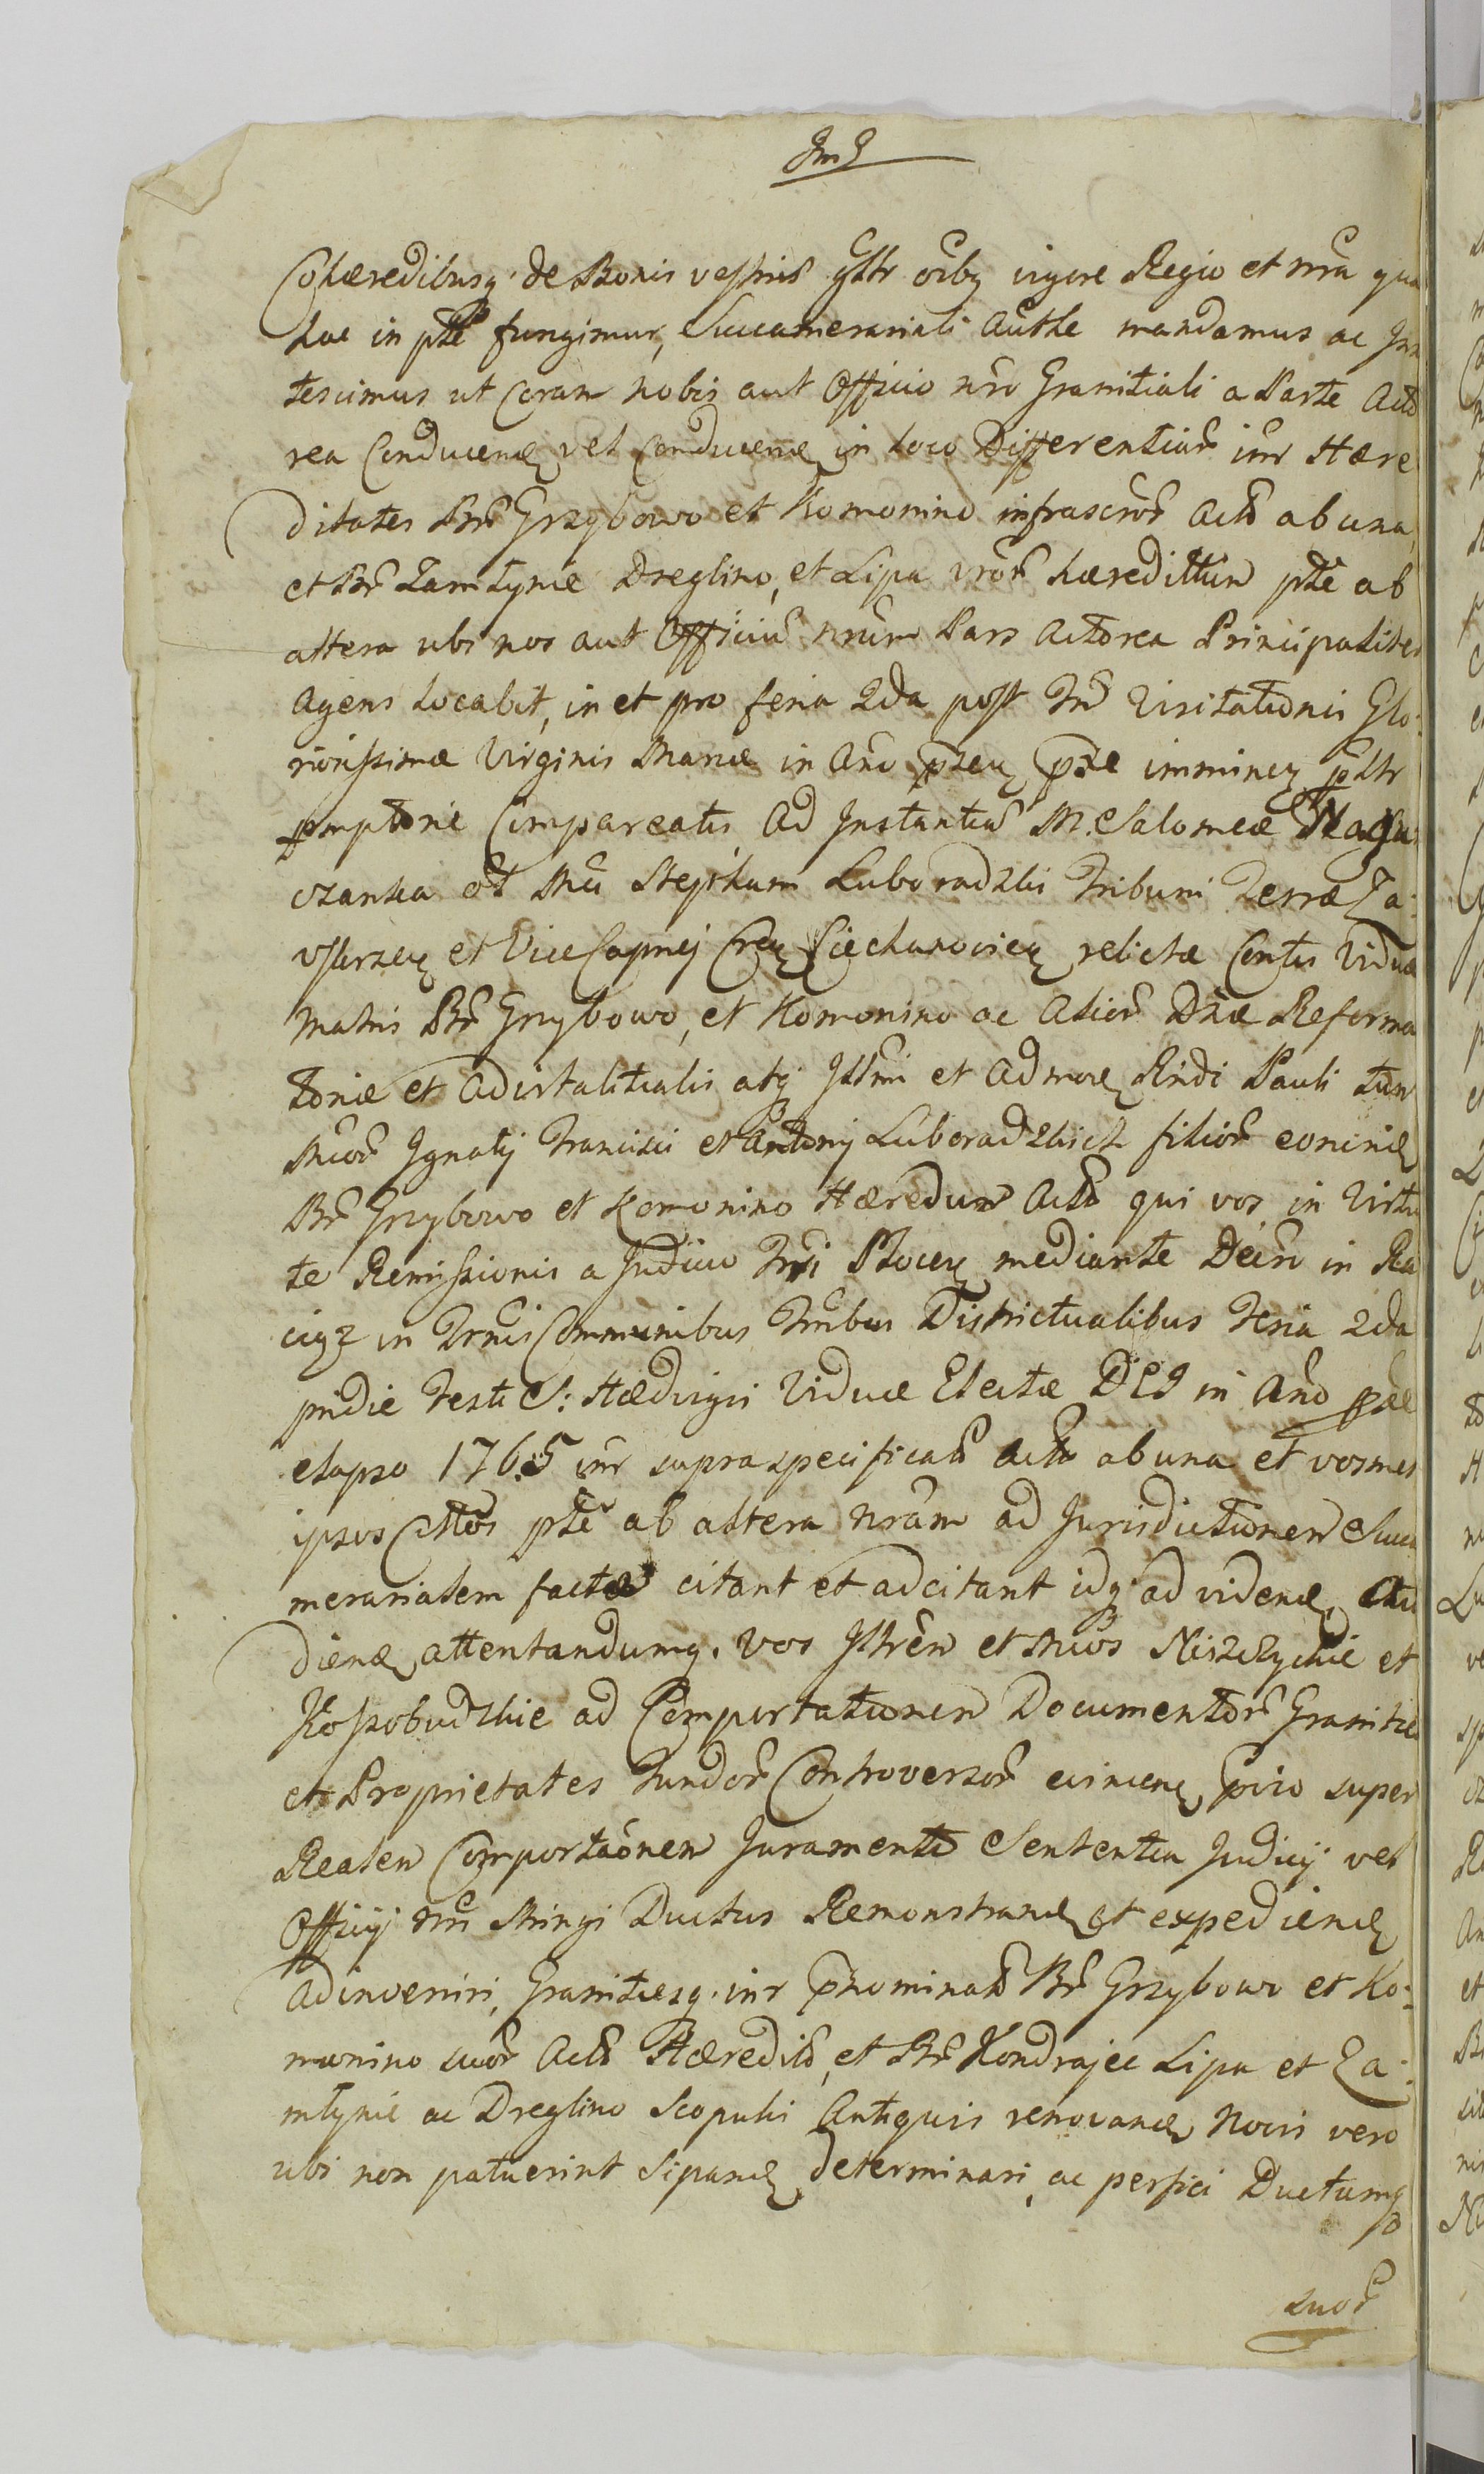 Cohæredibusq. de Bonis vestris gnltr oïbq vigore Regio et nra qua
hac in pte fungimur, Succamerariali Authe mandamus ac
tescimus ut Coram nobis aut Officio nro Granitiali a Parte Acto
rea Conducend vel conducend in loco Differentiar inr Hære
ditates Br Grzybowo et Komonino infrascror Acto ab una,
et Br Zamłynie Dreglino, et Lipa vror hæreditum pte ab
altera ubi nos aut Officiu nrum Pars Actorea Principaliter
Agens locabit, in et pro feria 2da post Fm Visitationis Glo:
riosissimæ Virginis Mariæ in Ano pzen pte imminen pltr
pmptorie Compareatis, Ad Instantia M. Salomeæ
czanka ol Mci Stephani Luboradzki Tribuni Terræ Za:
wskrzen et ViceCapnej Cren Ciechanovien relictæ Contis Viduæ
Matris Br Grzybowo, et Komonino ac Alior Dnæ Reforma
toriæ et Advitalitialis atq Illmi et Admodu Rndi Pauli tum
Mcor Ignatij Francisci et Antonij Luboradzkich filior eorund
Br Grzybowo et Komonino Hæredum Acto qui vos in Virtu
te Remissionis a Judicio Tri Plocen mediante Decro in Ra
ciąz in Trmis Communibus Trnibus Districtualibus Feria 2da
pridie Festi S: Hædvigis Viduæ Electæ DEI in Ano pte
elapso 1765 inr supraspecificato Acto ab una et vosmet
ipsos Cttos pte ab altera nram ad Jurisdictionem Succa
merarialem factæ citant et adcitant idq ad vidend, Au
diend attentandumq. vos Illren et Mcos Niszczyckie et
Kossobudzkie ad Comportationem Documentor Granitie
et Proprietates Fundor Controversor evincend pvio super
Realen Comportaonem Juramento Sententia Judicij vel
Officij nri Stringi Ductus Remonstrand et expediend
Adinveniri, Granitiesq. inr pnominato Br Grzybowo et Ko:
monino suor Acto Hæredito, et Br Kondrajec Lipa et Za:
młynie ac Dreglino Scopulis Antiquis renovand Novis vero
ubi non patuerint Sipand determinari, ac perfici Ductumq
suor